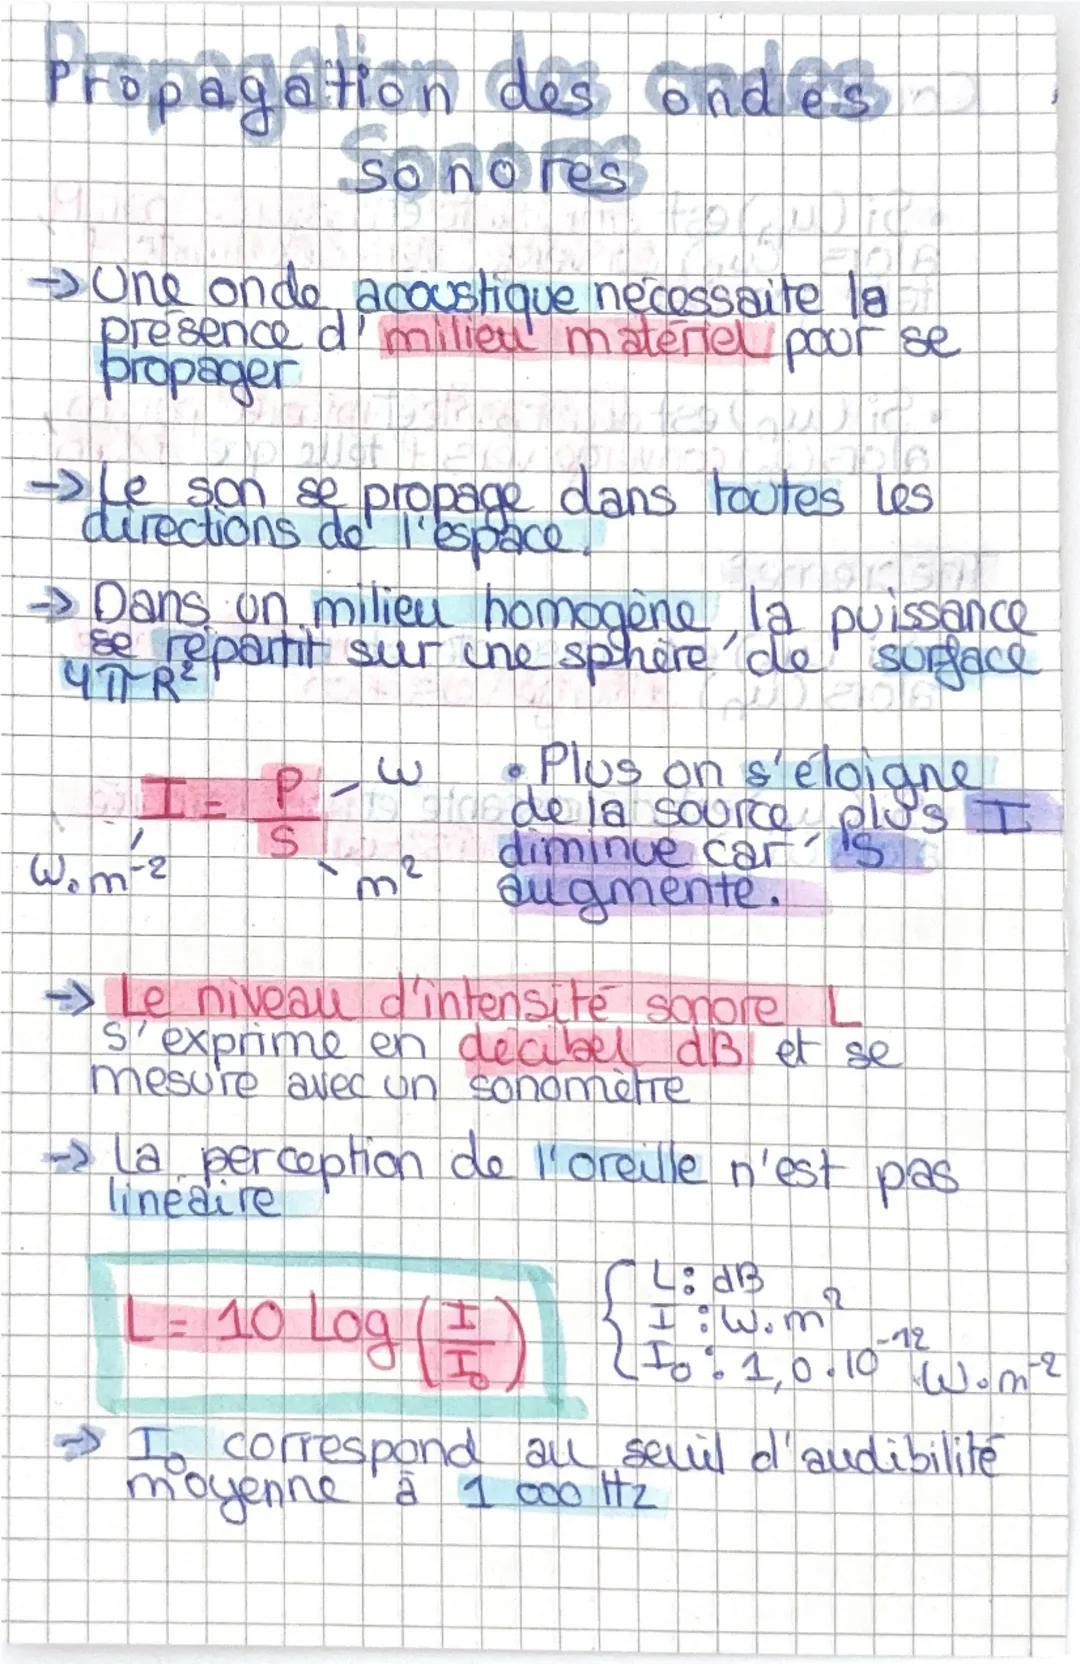 Propagation des ondes
sonores
→ Une onde acoustique nécessaite la
présence d' milieu matériel pour se
propager
→ Le son se propage dans toutes les
directions de l'espace.
→ Dans un milieu homogène, la puissance
se répartit sur une sphère de surface
4πR²
I = P/S
W
W.m⁻²
m²
• Plus on s'éloigne
de la source, plus I
diminue car S
augmente.
→ Le niveau d'intensité sonore L
s'exprime en décibel dB et se
mesure avec un sonomètre
→ La perception de l'oreille n'est pas
linéaire
L = 10 Log (I/I₀)
L : dB
I : W.m²
I₀ : 1,0.10⁻¹² W.m⁻²
→ I₀ correspond au seuil d'audibilité
moyenne à 1 000 Hz